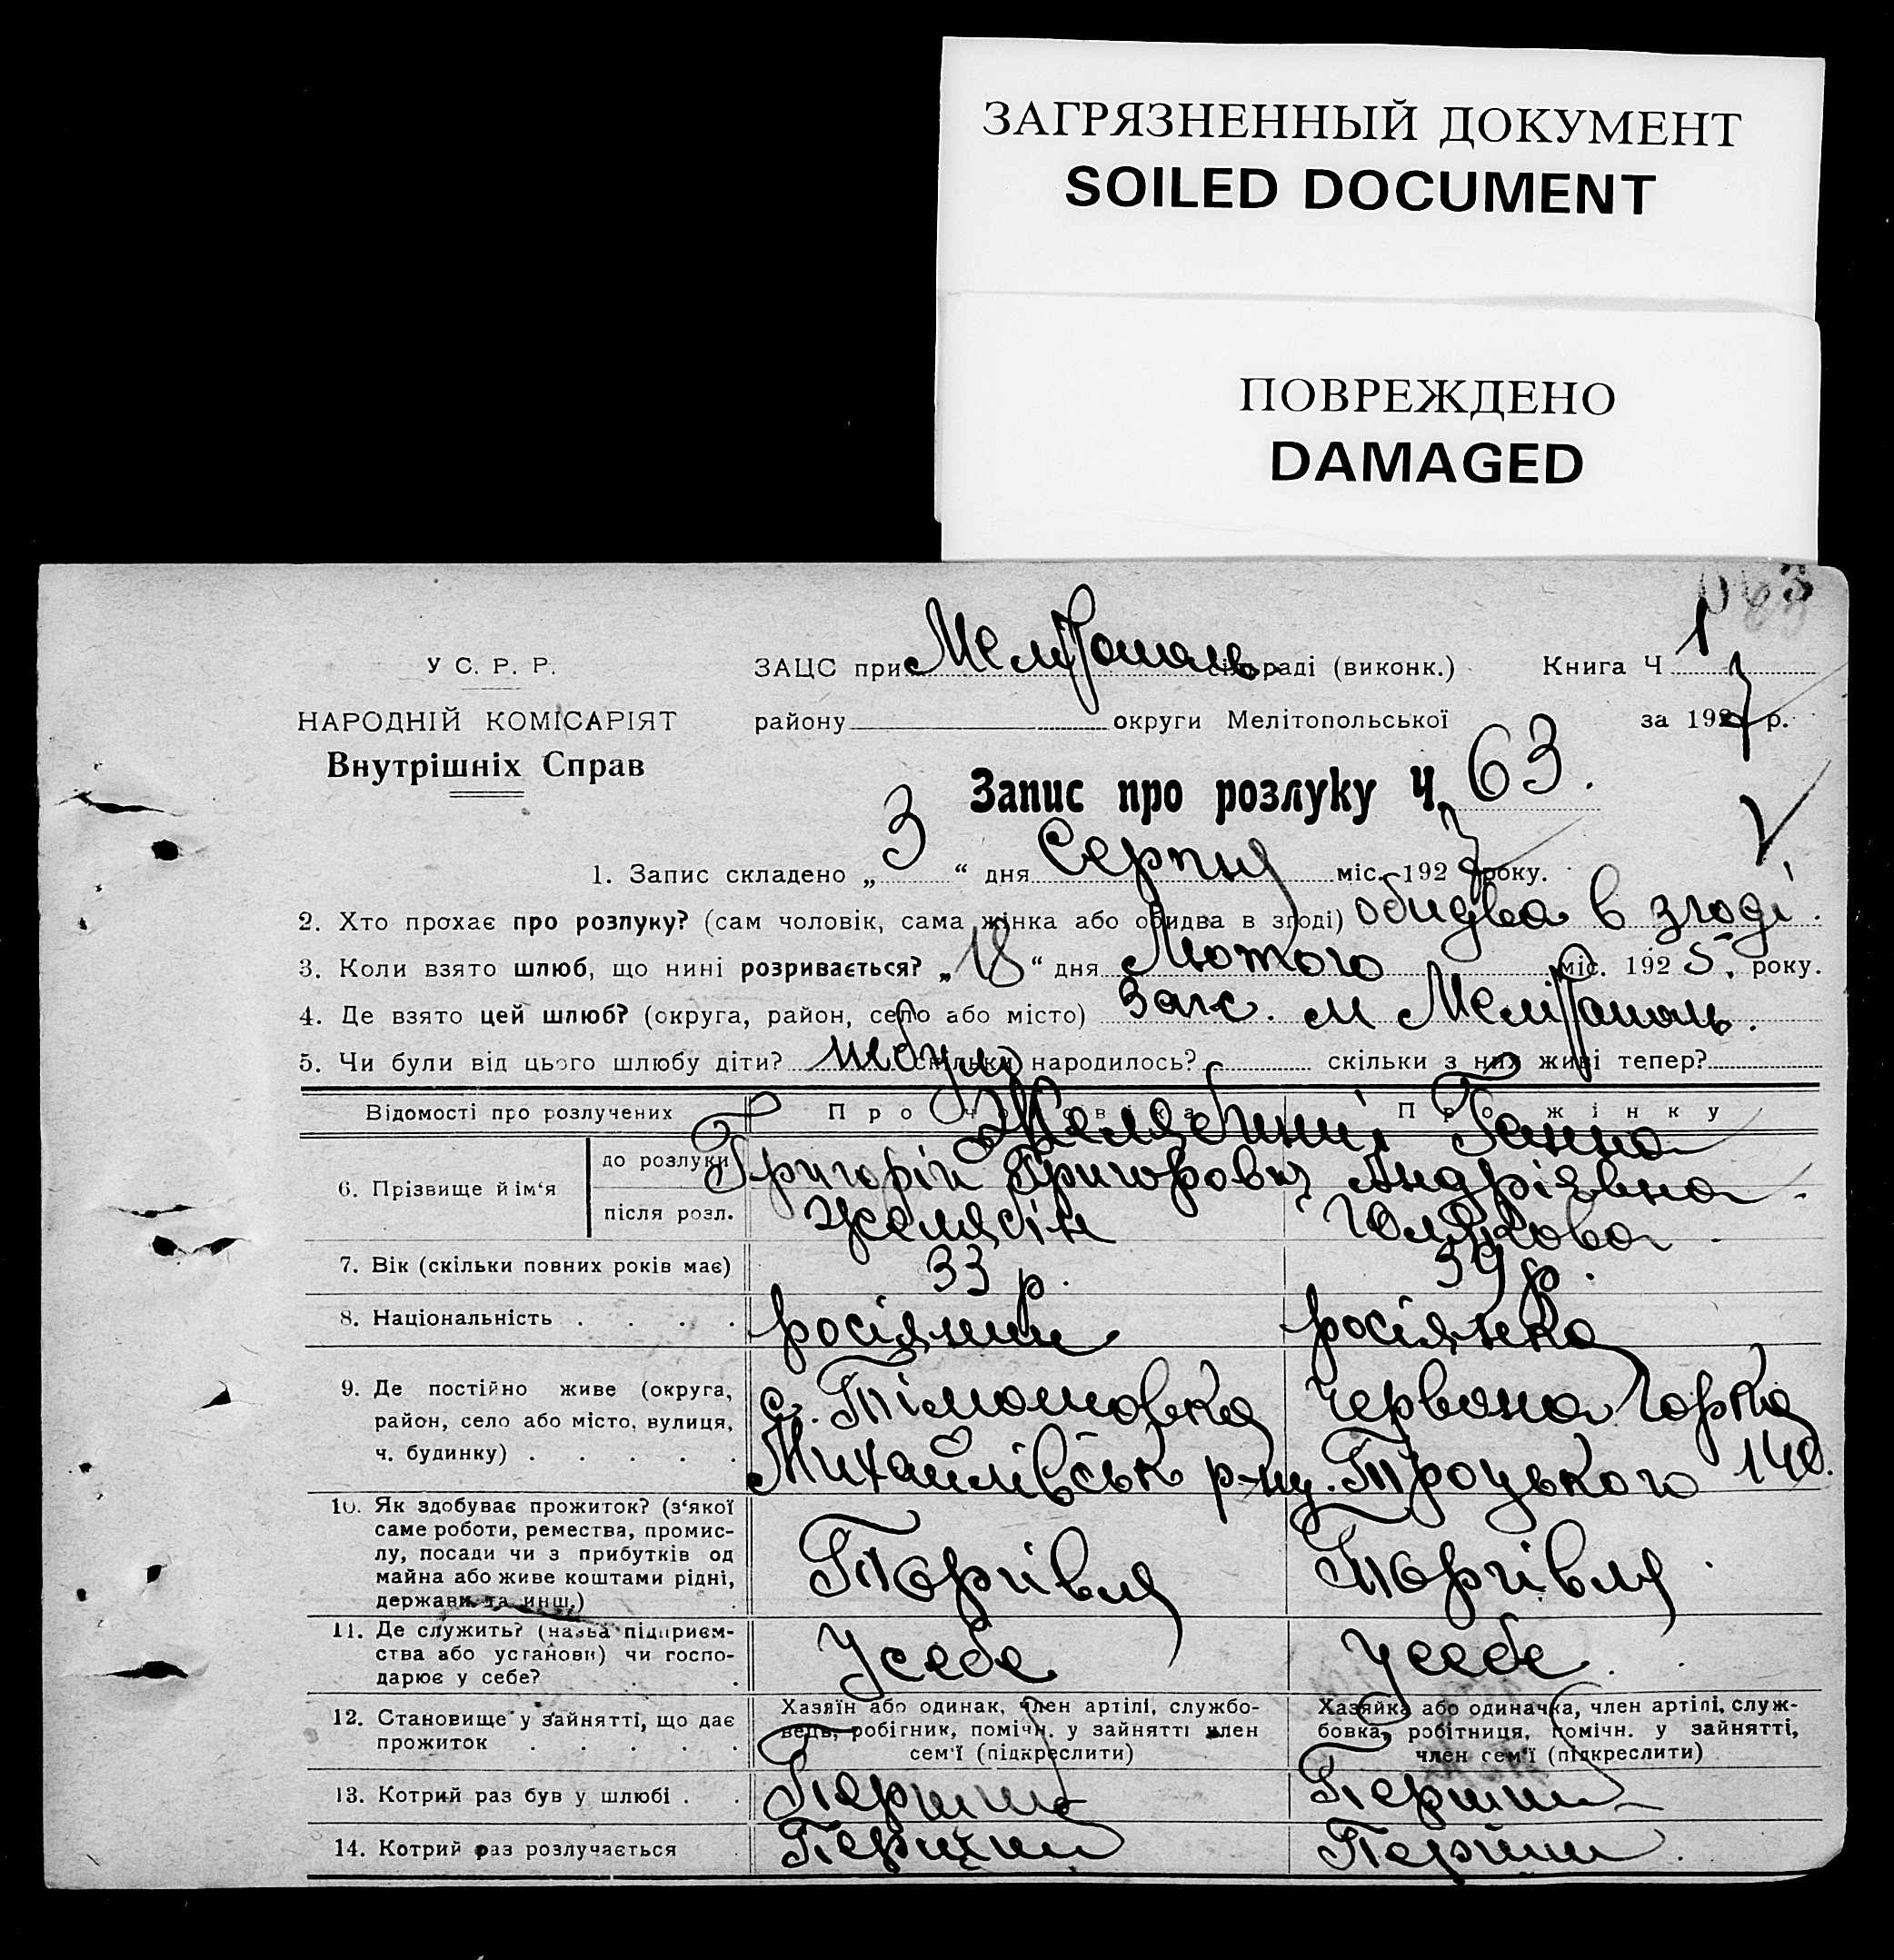 ЗАГРЯЗНЕННЫЙ ДОКУМЕНТ
SOILED DOCUMENT
ПОВРЕЖДЕНО
DAMAGED
У С. Р. Р.
НАРОДНІЙ КОМІСАРІЯТ
Внутрішніх Справ
ЗАЦС при Мелітополь сільраді (виконк.) Книга Ч 1
району округи Мелітопольської за 1927 р.
Запис про розлуку Ч. 63.
1. Запис складено „ 3 “ дня Серпня міс. 1927 року.
2. Хто прохає про розлуку? (сам чоловік, сама жінка або обидва в згоді) обидва в згоді.
3. Коли взято шлюб, що нині розривається? „ 18 “ дня Лютого міс. 1925. року.
4. Де взято цей шлюб? (округа, район, село або місто) Загс. м Мелітополь.
5. Чи були від цього шлюбу діти? небули скільки народилось? скільки з них живі тепер?
Відомості про розлучених Про чоловіка Про жінку
6. Прізвище й ім‘я
до розлуки Желябині Ганна
Григорій Григорович Андріявна
після розл. Желябін
7. Вік (скільки повних років має) 33 р. 39 р.
8. Національність . . . . росіянин росіянка
9. Де постійно живе (округа, район, село або місто, вулиця, ч. будинку) . . . . .
с. Тімошовка Червона Горка
Михайлівськ р-ну. Троцького 140.
10. Як здобуває прожиток? (з‘якої
саме роботи, ремества, промис-
лу, посади чи з прибутків од
майна або живе коштами рідні,
держави та инш.)
Торгівля Торгівля
11. Де служить? (назва підприєм-
ства або установи) чи госпо-
дарює у себе? . .
Усебе Усебе.
12. Становище у зайнятті, що дає
прожиток . . . . .
Хазяїн або одинак, член артілі, службо-
вець, робітник, помічн. у зайнятті член
сем‘ї (підкреслити)
Хазяйка або одиначка, член артілі, служ-
бовка, робітниця, помічн. у зайнятті,
член сем‘ї (підкреслити)
13. Котрий раз був у шлюбі . . Перший Перший
14. Котрий раз розлучається Перший Перший.